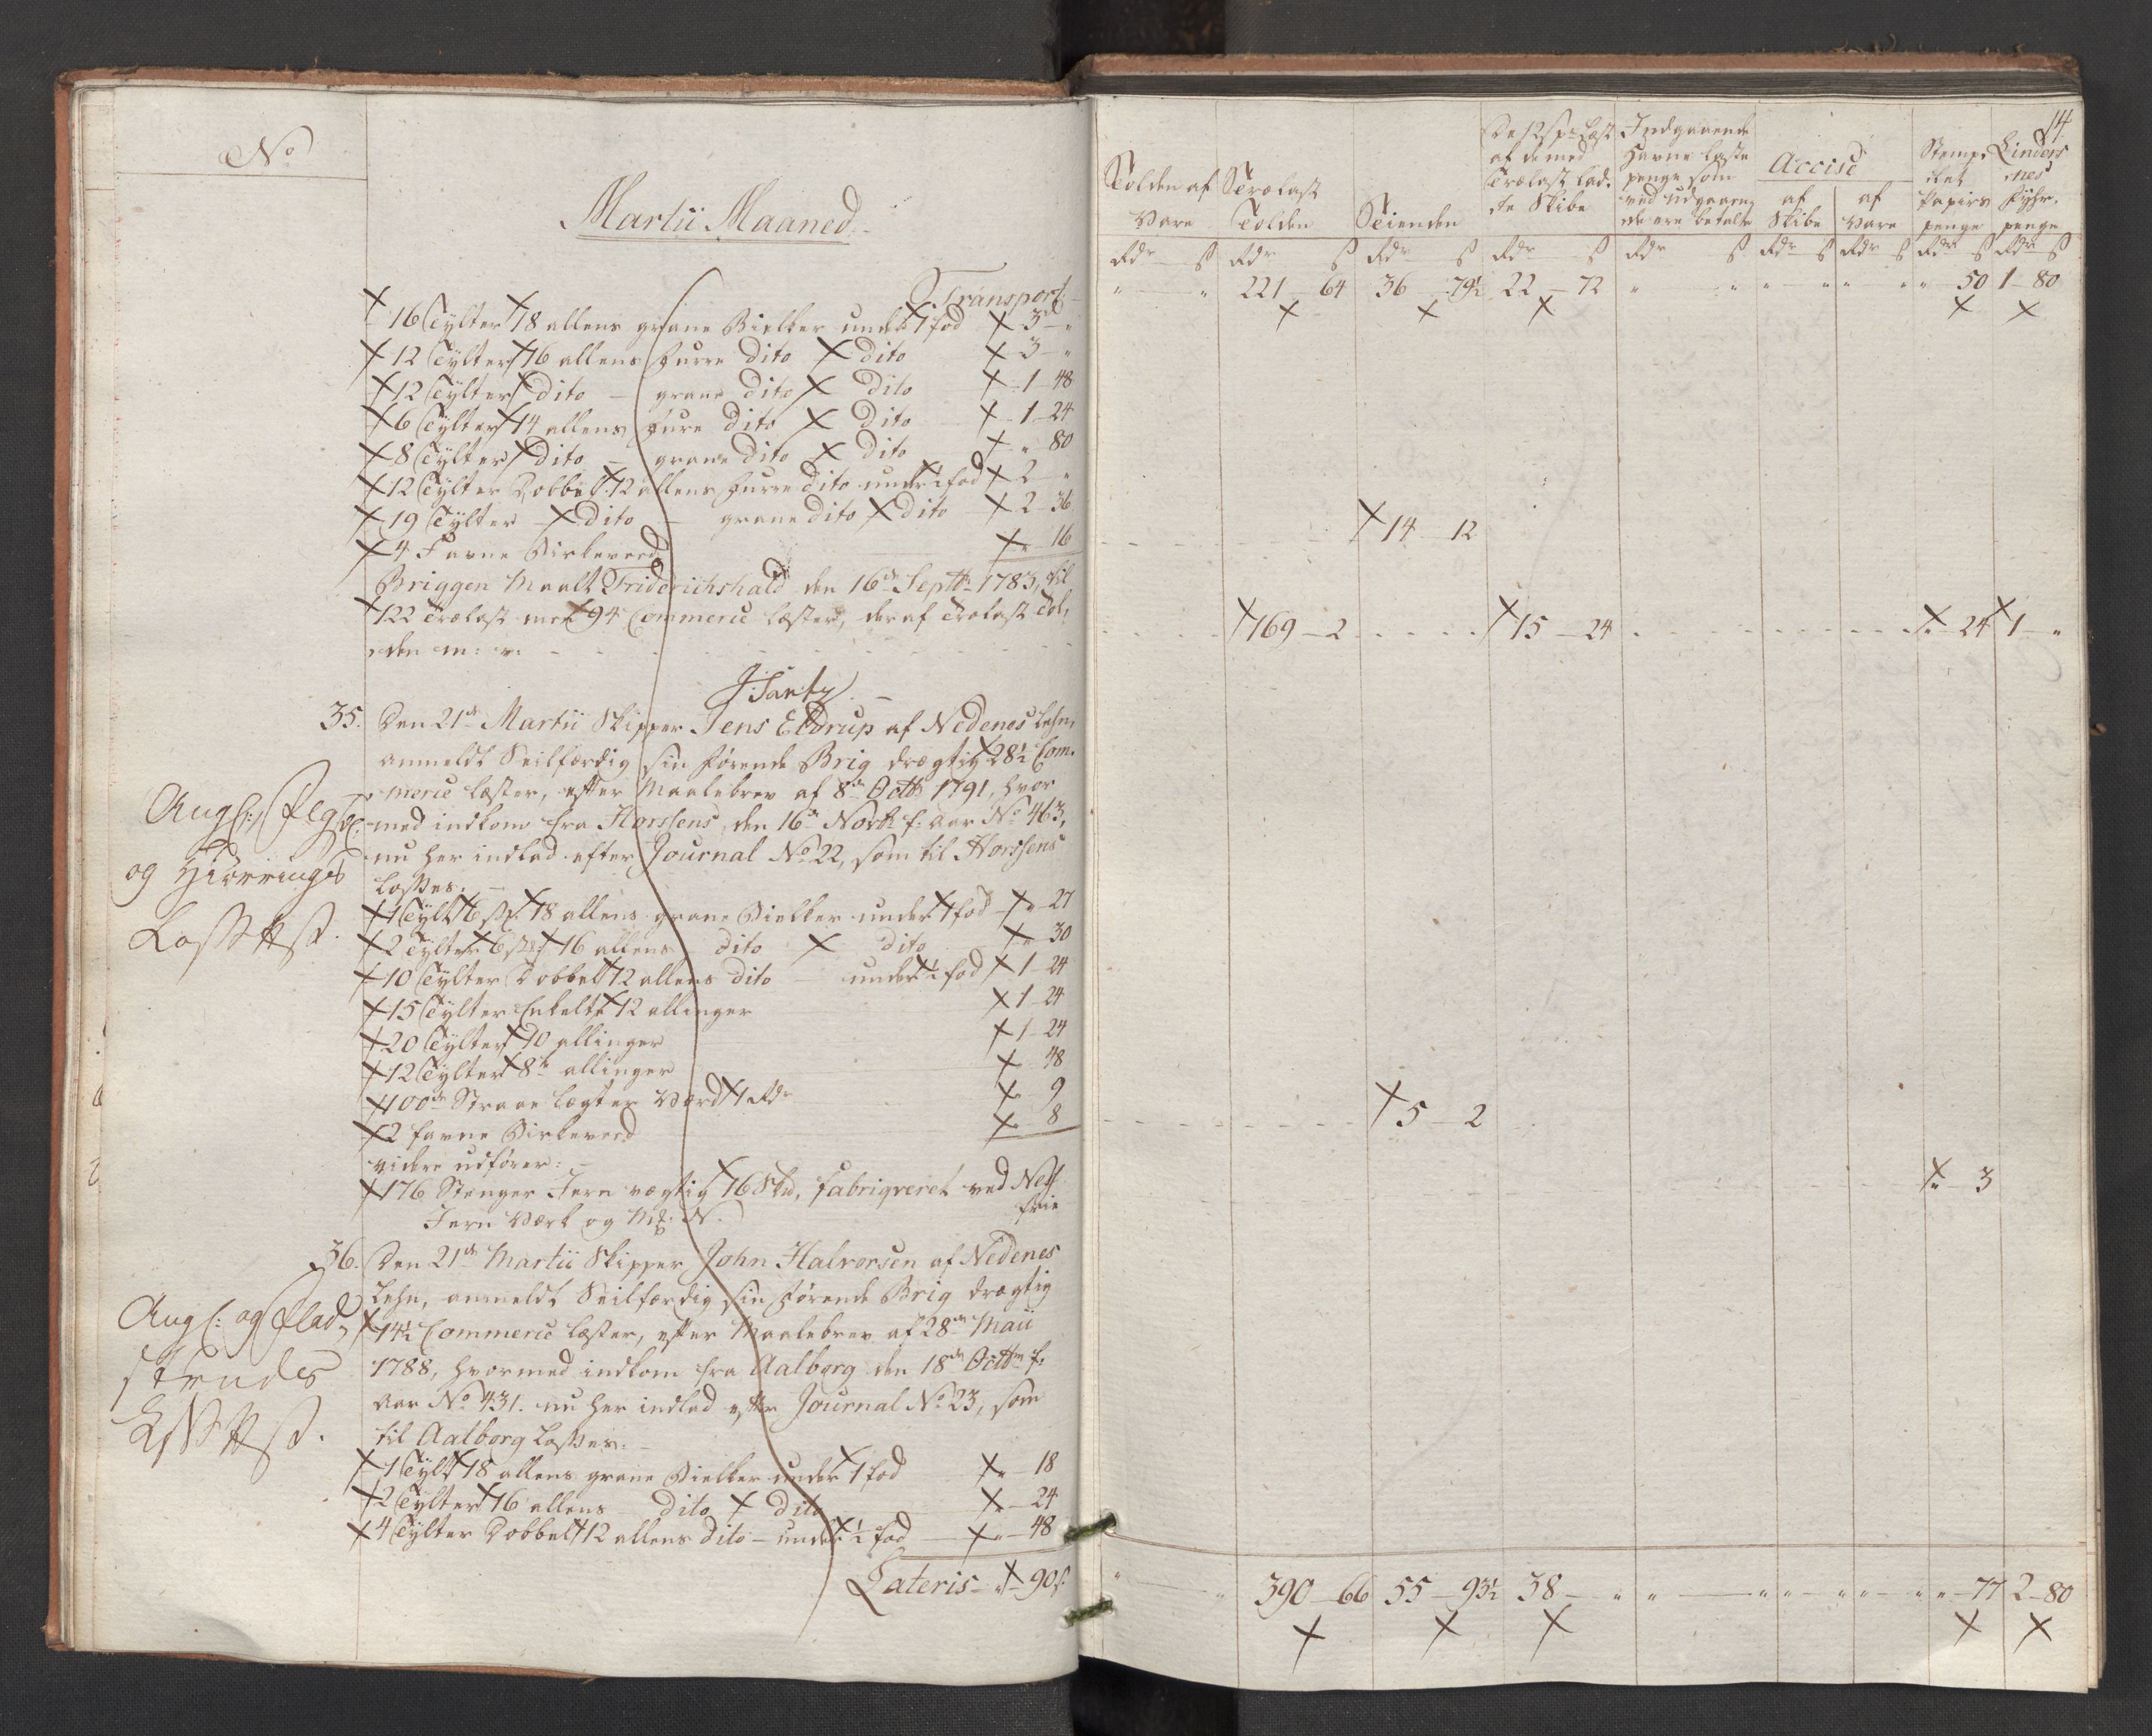 No
Martii Maaned
Transport
16 Tÿlter 18 allens grane Bielker under 1 fod 3 - "
12 Tÿlter 16 allens furre dito dito 3 - "
12 Tÿlter dito - grane dito dito 1 - 48
6 Tÿlter 14 allens fure dito dito 1 - 24
8 Tÿlter dito - grane dito dito " - 80
12 Tÿlter Dobbelt 12 allens furre dito under ½ fod 2 - "
19 Tÿlter - dito - grane dito dito 2 - 36
4 Favne Birkeveed " - 16
Briggen maalt Friderichshald den 16de Septbr 1783, til
122 Trælast men 94 Commerce læster, deraf Trælast Tol,
den m: v:
35. Den 21de Martii Skipper Jens Eldrup af Nedenes Lehn,
anmeldt Seilfærdig sin førende Brig drægtig 28½ Com-
merce læster, efter Maalebrev af 8de Octbr 1791, hvor
med indkom fra Horssens, den 16de Novbr f: aar No 463,
nu her indlad efter Journal No 22, som til Horssens
losses.
og Hiørringes
1 Tÿlt 6 st: 18 allens grane Bielker under 1 fod " - 27
2 Tÿlter 6 st: 16 allens dito dito " - 30
10 Tÿlter Dobbelt 12 allens dito under ½ fod 1 - 24
15 Tÿlter Enkelte 12 allinger 1 - 24
20 Tÿlter 10 allinger 1 - 24
12 Tÿlter 8te allinger 48
100de Straae lægter Værd 1 Rdr 9
2 favne Birkeveed 8
videre udfører:
176 Stænger Jern vægtig 16 Skd, fabriqveret ved Nes
Jern Værk og N. frie
36. Den 21de Martii Skipper John Halvorsen af Nedenes
Lehn, anmeldt Seilfærdig sin førende Brig drægtig
14½ Commerce læster, efter Maalebrev af 28de Maii
1788, hvormed indkom fra Aalborg den 18de Octbr f:
aar No 431. nu her indlad efter Journal No 23, som
til Aalborg losses.
1 Tÿlt 18 allens grane Bielker under 1 fod " - 18
2 Tÿlter 16 allens dito dito " - 24
4 Tÿlter Dobbelt 12 allens dito - under ½ fod " - 48
Lateris - " - 90 s:
14
Tolden af Vare
Trælast Tolden
Teienden
De 12 sp: Læst af de med Trælast lad. te Skibe
Indgaaende Havne laste penge som ved udgaaen, de ere betalte
Accise
af Skibe
af Vare
Stemp, let Papirs penge
Linders nes Fyhr. penge
Rdr s Rdr s Rdr s Rdr s Rdr s Rdr s Rdr s Rdr s Rdr s
" " 221 - 64 36 - 79½ 22 - 72 " " " " " " " 50 1 - 80
14 12
169 - 2 15 - 24 " - 24 1 - "
5 - 2
" - 3
" " 390 - 66 55 - 93½ 38 - " " " " " " " " - 77 2 - 80